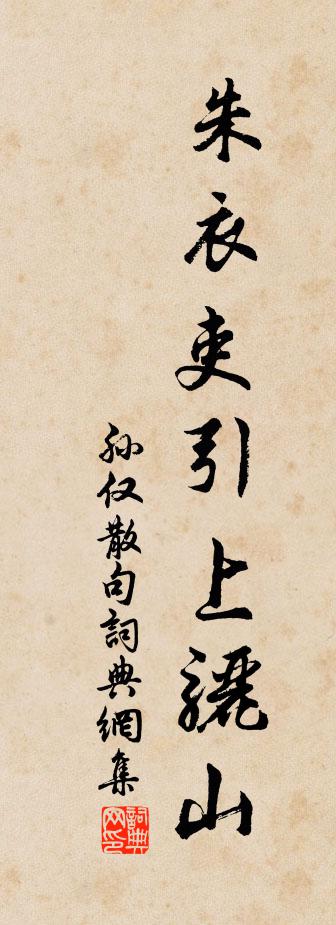 朱衣吏引上驪山
孙仅散句詞典網集
詞典网印